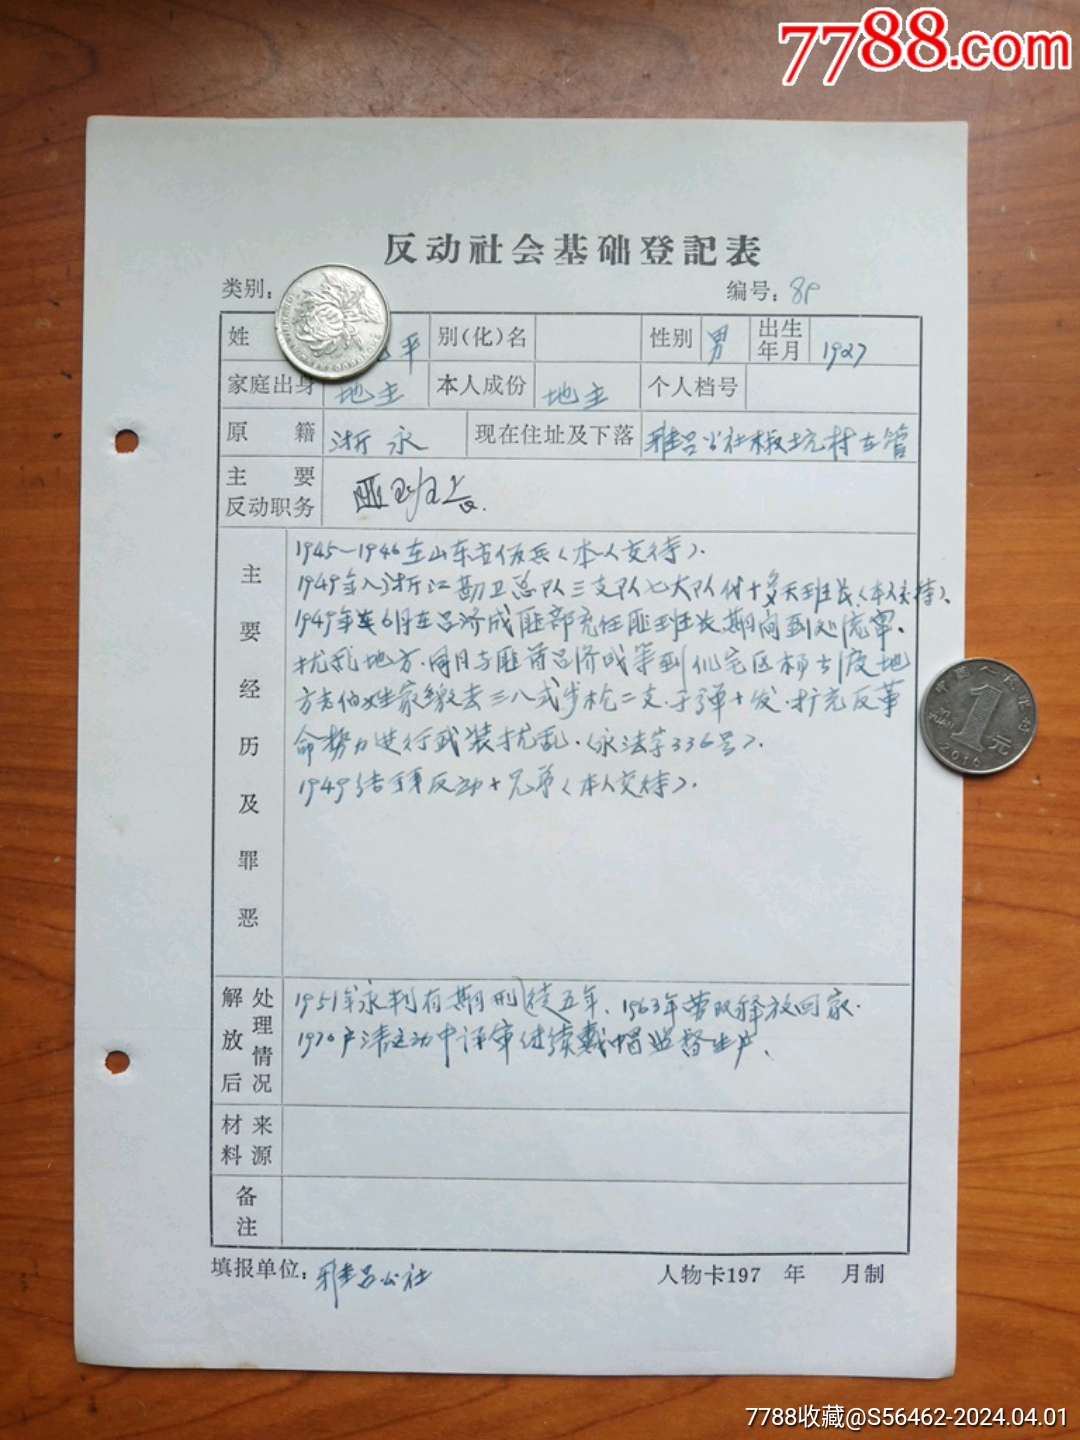 7788.com
反动社会基础登記表
类别： 编号：89
姓 平 别(化)名 性别 男 出生年月 1927
家庭出身 地主 本人成份 地主 个人档号
原籍 浙永 现在住址及下落 雅吕公社椒坑村在管
主要反动职务 匪班长.
主要经历及罪恶
1945—1946在山东当伪兵(本人交待).
1949年入浙江勘卫总队三支队七大队付十多天班长(本人交待).
1949年 6月在吕济成匪部充任匪班长期间到处流窜、
扰乱地方.同月与匪首吕济成等到仙宅区杨
方 家缴去三八式步枪二支.子弹十发.扩充反革
命势力进行武装扰乱.(永法字336号).
1949结拜反动十兄弟(本人交待).
解放后处理情况
1951年永判有期刑徒五年、1963年劳改释放回家.
1970 清运动中评审继续戴帽监督生产、
材料来源
备注
填报单位：雅吕公社 人物卡197 年 月制
中国人民银行
1元
YI YUAN
2016
7788收藏@S56462-2024.04.01